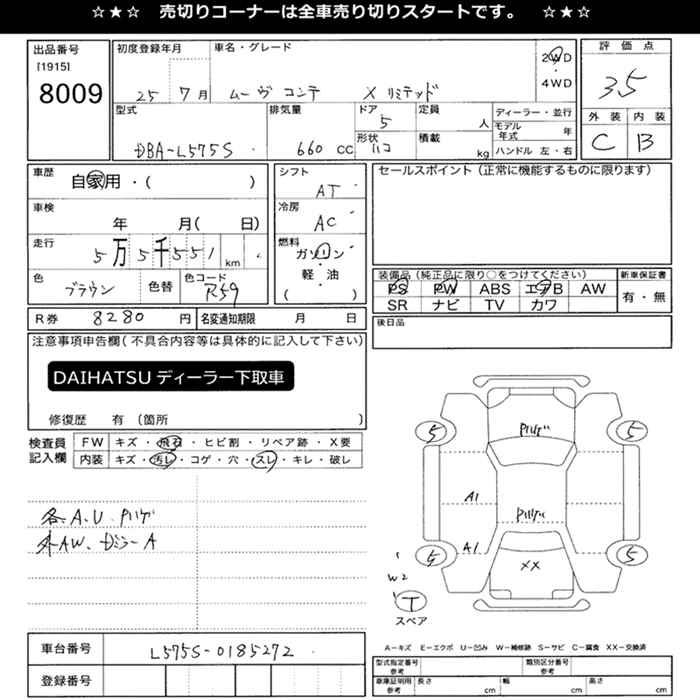 ☆★☆ 売切りコーナーは全車売り切りスタートです。 ☆★☆
出品番号
[1915]
8009
初度登録年月
25 7月
車名・グレード
ムーヴ コンテ X リミテッド
2WD
4WD
評価点
3.5
外装 内装
C B
型式
DBA-L575S
排気量
660 CC
ドア
5
形状
ハコ
定員
人
積載
kg
ディーラー・並行
モデル年式 年
ハンドル 左・右
車歴
自家用・( )
車検
年 月( 日)
走行
5万5千551 km
色
ブラウン
色替
色コード
R59
シフト
AT
冷房
AC
燃料
ガソリン
・
軽・油
( )
セールスポイント(正常に機能するものに限ります)
装備品(純正品に限り○をつけてください)
PS PW ABS エアB AW
SR ナビ TV カワ
新車保証書
有・無
R券 8280 円
名変通知期限 月 日
後日品
注意事項申告欄(不具合内容等は具体的に記入して下さい)
DAIHATSU ディーラー下取車
修復歴 有(箇所 )
検査員
記入欄
FW キズ・飛石・ヒビ割・リペア跡・X要
内装 キズ・汚レ・コゲ・穴・スレ・キレ・破レ
各A.U.Pハゲ
外AW、ドミラーA
5 5
Pハゲ
A1
Pハゲ
A1
5 5
XX
W2
T
スペア
A−キズ E−エクボ U−凹み W−補修跡 S−サビ C−腐食 XX−交換済
車台番号
L575S-0185272
登録番号
型式指定番号
参考
類別区分番号
参考
車庫証明用
参考
長さ cm
幅 cm
高さ cm